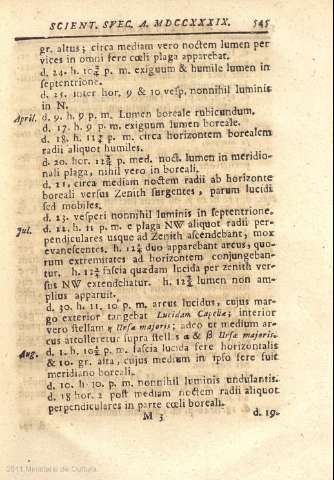 SCIENT. SVEC. A. MDCCXXXIX. 545
gr. altus; circa mediam vero noctem lumen per
vices in omni fere cœli plaga apparebat.
d. 24. h. 10¾ p. m. exiguum & humile lumen in
septentrione.
d. 25. inter hor. 9 & 10 vesp. nonnihil luminis
in N.
April. d. 9. h. 9 p. m. Lumen boreale rubicundum.
d. 17. h 9 p. m. exiguum lumen boreale.
d. 18. h. p. m. circa horizontem borealem
radii aliquot humiles.
d. 20. hor. p. med. noct. lumen in meridio-
nali plaga, nihil vero in boreali.
d. 21, circa mediam noctem radii ab horizonte
boreali versus Zenith surgentes, parum lucidi
sed mobiles.
d. 23. vesperi nonnihil luminis in septentrione.
Jul. d. 22. h. 11 p. m. e plaga NW aliquot radii per-
pendiculares usque ad Zenith ascendebant; mox
evanescentes. h. duo apparebant arcus, quo-
rum extremitates ad horizontem conjungeban-
tur. h. fascia quædam lucida per zenith ver-
sus NW extendebatur. h. lumen non am-
plius apparuit.
d. 30. h. 11. 10 p. m. arcus lucidus, cujus mar-
go exterior tangebat Lucidam Capellæ; interior
vero stellam Ursæ majoris; adeo ut medium ar-
cus attolleretur supra stell. α & β Ursæ majoris.
Aug. d. 1. h. p. m. fascia lucida fere horizontalis
& 10. gr. alta, cujus medium in ipso fere fuit
meridiano boreali.
d. 10. h. 10. p. m. nonnihil luminis undulantis.
d. 18 hor. 2 post mediam noctem radii aliquot
perpendiculares in parte cœli boreali.
M 3 d. 19.
2011 Ministerio de Cultura